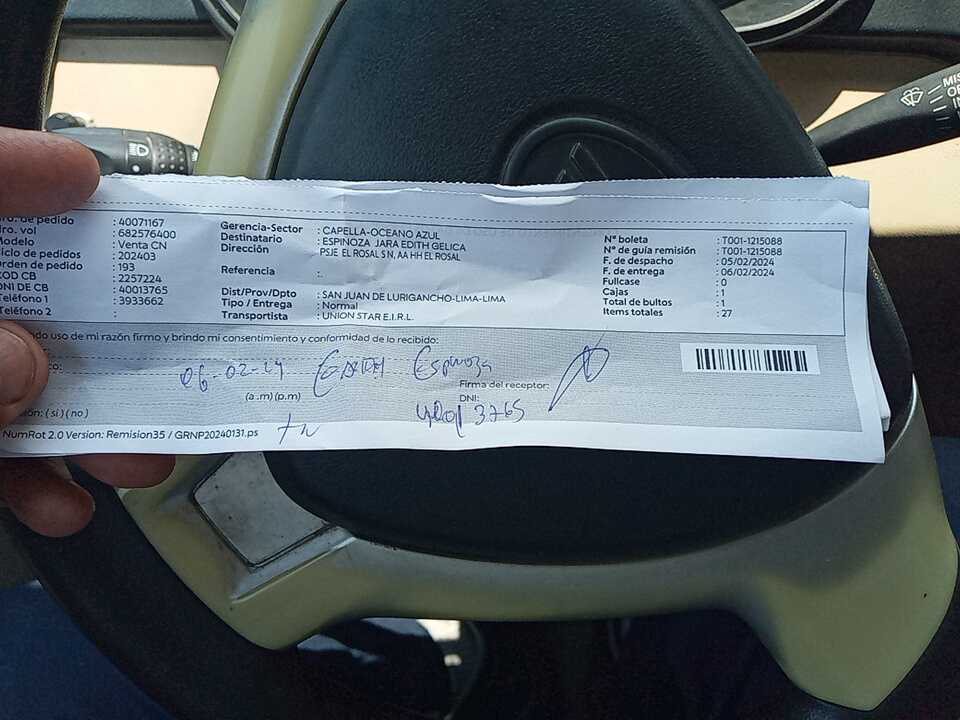 ro. de pedido : 40071167
ro. vol : 682576400
odelo : Venta CN
icio de pedidos : 202403
rden de pedido : 193
COD CB : 2257224
DNI DE CB : 40013765
eléfono 1 : 3933662
eléfono 2 :
Gerencia-Sector : CAPELLA-OCEANO AZUL
Destinatario : ESPINOZA JARA EDITH GELICA
Dirección PSJE EL ROSAL S N, AA HH EL ROSAL
Referencia :.
Dist/Prov/Dpto : SAN JUAN DE LURIGANCHO-LIMA-LIMA
Tipo / Entrega : Normal
Transportista : UNION STAR E.I.R.L.
N° boleta : T001-1215088
N° de guía remisión : T001-1215088
F. de despacho : 05/02/2024
F. de entrega : 06/02/2024
Fullcase : 0
Cajas : 1
Total de bultos : 1
Items totales : 27
do uso de mi razón firmo y brindo mi consentimiento y conformidad de lo recibido:
06-02-24 Edith Espinoza
(a .m) (p.m)
Firma del receptor:
DNI:
ón: ( si ) ( no )
NumRot 2.0 Version: Remision35 / GRNP20240131.ps
MIS